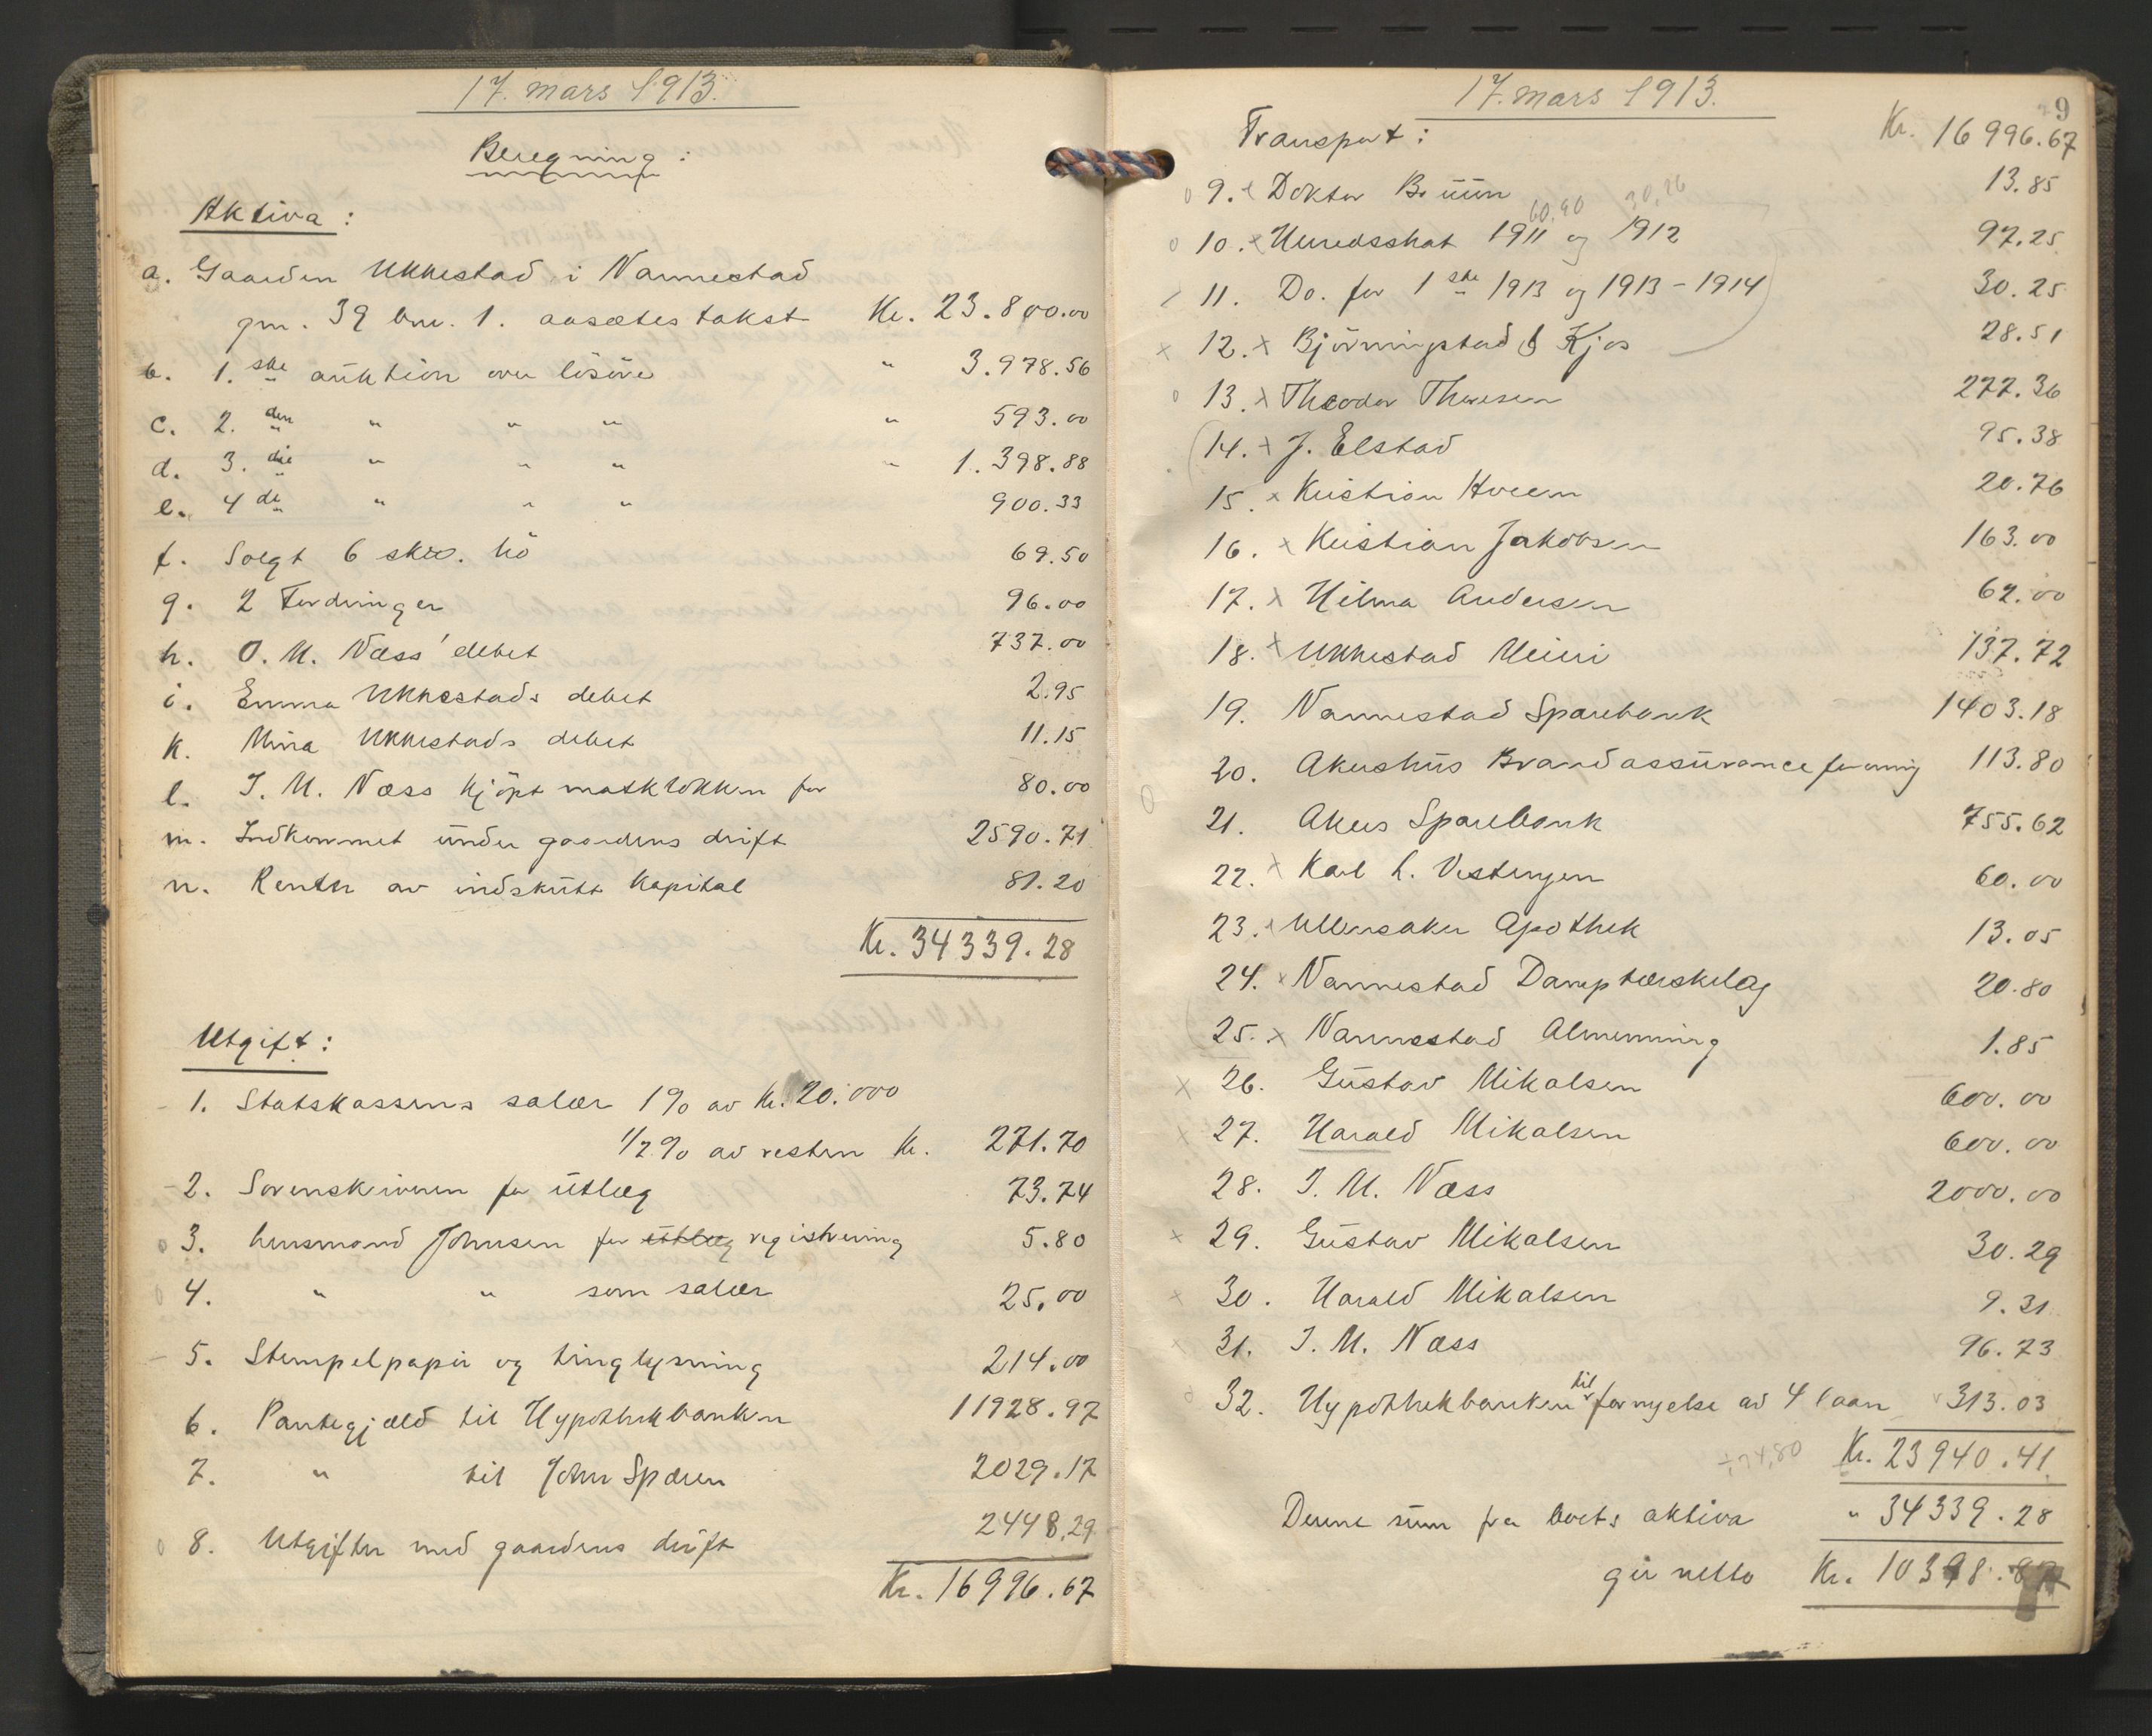 17. mars 1913.
Beregning:
Aktiva:
a. Gaarden Ukkestad i Nannestad
gnr. 39 bnr. 1. aasætestakst Kr. 23.800.00
b. 1.ste auktion over lösöre " 3.978.56
c. 2.den " " " " 593.00
d. 3.die " " " " 1.398.88
e. 4de " " " 900.33
f. Solgt 6 skv. hö 69.50
g. 2 Fordringer 96.00
h. O. M. Næss' debet 737.00
i. Emma Ukkestads debet 2.95
k. Mina Ukkestads debet 11.15
l. I. M. Næss kjöpt matklokken for 80.00
m. Indkommet under gaardens drift 2590.71
n. Renter av indskutt kapital 81.20
Kr. 34339.28
Utgift:
1. Statskassens salær 1% av Kr. 20.000
1/2% av resten Kr. 271.70
2. Sorenskriveren for utlæg 73.74
3. Lensmand Johnsen for utlæg registrering 5.80
4. " " som salær 25.00
5. Stempelpapir og tinglysning 214.00
6. Pantegjæld til Hypothekbanken 11928.97
7. " til John Spæren 2029.17
8. Utgifter med gaardens drift 2448.29
Kr. 16996.67
17. mars 1913.
9
Transport: Kr. 16996.67
9. Doktor Bruun 13.85
60,90 30,26
10. x Herredsskat 1911 og 1912 97.25
11. Do. for 1ste 1913 og 1913-1914 30.25
12. x Björningstad & Kjos 28.51
13. x Theodor Thoresen 277.36
14. x J. Elstad 95.38
15. x Kristian Hveem 20.76
16. x Kristian Jakobsen 163.00
17. x Hilma Andersen 62.00
18. x Ukkestad Meieri 137.72
19. Nannestad Sparebank 1403.18
20. Akershus Brandassuranceforening 113.80
21. Akers Sparebank 755.62
22. x Karl L. Vestengen 60.00
23. x Ullensaker Apothek 13.05
24. x Nannestad Damptærskelag 20.80
25. x Nannestad Almenning 1.85
x 26. Gustav Mikalsen 600.00
x 27. Harald Mikalsen 600.00
28. I. M. Næss 2000.00
x 29. Gustav Mikalsen 30.29
x 30. Harald Mikalsen 9.31
x 31. I. M. Næss 96.73
32. Hypothekbanken til fornyelse av 4 laan 313.03
÷74,80 Kr. 23940.41
Denne sum fra boets aktiva " 34339.28
gir netto Kr. 10398.87